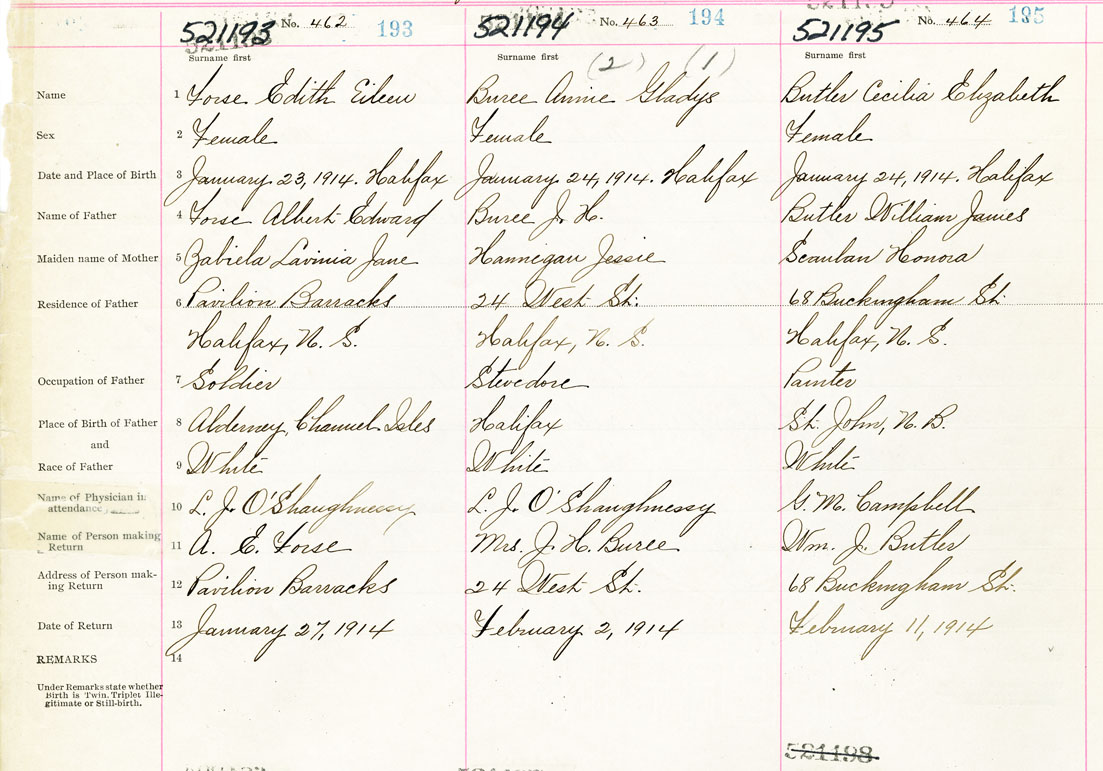 521193 No. 462 193
521194 No. 463 194
521195 No. 464 195
Surname first
Surname first (2) (1)
Surname first
Name 1 Forse Edith Eileen
Buree Annie Gladys
Butler Cecilia Elizabeth
Sex 2 Female
Female
Female
Date and Place of Birth 3 January 23, 1914. Halifax
January 24, 1914. Halifax
January 24, 1914. Halifax
Name of Father 4 Forse Albert Edward
Buree J. H.
Butler William James
Maiden name of Mother 5 Zabiela Lavinia Jane
Hannigan Jessie
Scanlan Honora
Residence of Father 6 Pavilion Barracks
24 West St.
68 Buckingham St.
Halifax, N. S.
Halifax, N. S.
Halifax, N. S.
Occupation of Father 7 Soldier
Stevedore
Painter
Place of Birth of Father 8 Alderney, Channel Isles
Halifax
St. John, N. B.
and
Race of Father 9 White
White
White
Name of Physician in
attendance 10 L. J. O'Shaughnessy
L. J. O'Shaughnessy
G. M. Campbell
Name of Person making
Return 11 A. E. Forse
Mrs. J. H. Buree
Wm. J. Butler
Address of Person mak-
ing Return 12 Pavilion Barracks
24 West St.
68 Buckingham St.
Date of Return 13 January 27, 1914
February 2, 1914
February 11, 1914
REMARKS 14
Under Remarks state whether
Birth is Twin, Triplet Ille-
gitimate or Still-birth.
521198